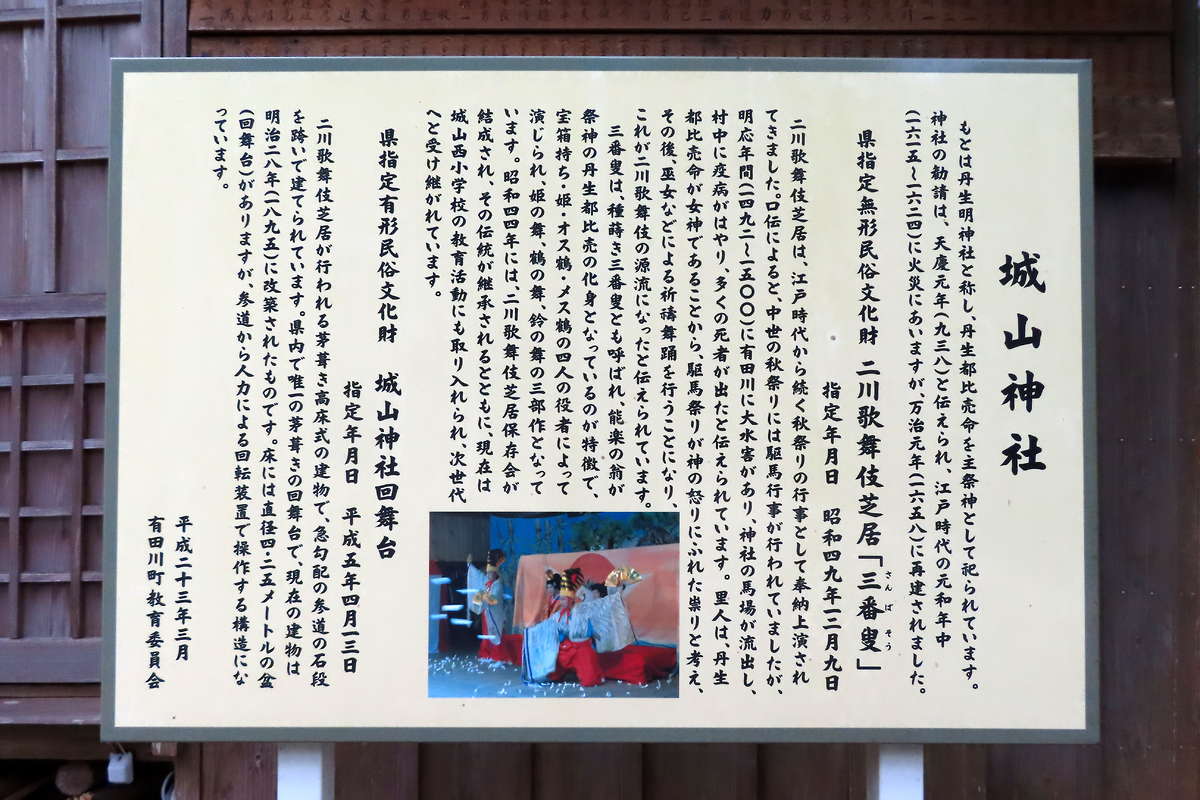 城山神社
もとは丹生明神社と称し、丹生都比売命を主祭神として祀られています。
神社の勧請は、天慶元年(九三八)と伝えられ、江戸時代の元和年中
(一六一五～一六二四)に火災にあいますが、万治元年(一六五八)に再建されました。
県指定無形民俗文化財 二川歌舞伎芝居「三番叟」
さんばそう
指定年月日 昭和四九年一二月九日
二川歌舞伎芝居は、江戸時代から続く秋祭りの行事として奉納上演され
てきました。口伝によると、中世の秋祭りには駆馬行事が行われていましたが、
明応年間(一四九二～一五〇〇)に有田川に大水害があり、神社の馬場が流出し、
村中に疫病がはやり、多くの死者が出たと伝えられています。里人は、丹生
都比売命が女神であることから、駆馬祭りが神の怒りにふれた祟りと考え、
その後、巫女などによる祈祷舞踊を行うことになり、
これが二川歌舞伎の源流になったと伝えられています。
三番叟は、種蒔き三番叟とも呼ばれ、能楽の翁が
祭神の丹生都比売の化身となっているのが特徴で、
宝箱持ち・姫・オス鶴・メス鶴の四人の役者によって
演じられ、姫の舞、鶴の舞、鈴の舞の三部作となって
います。昭和四四年には、二川歌舞伎芝居保存会が
結成され、その伝統が継承されるとともに、現在は
城山西小学校の教育活動にも取り入れられ、次世代
へと受け継がれています。
県指定有形民俗文化財 城山神社回舞台
指定年月日 平成五年四月一三日
二川歌舞伎芝居が行われる茅葺き高床式の建物で、急勾配の参道の石段
を跨いで建てられています。県内で唯一の茅葺きの回舞台で、現在の建物は
明治二八年(一八九五)に改築されたものです。床には直径四・二五メートルの盆
(回舞台)がありますが、参道から人力による回転装置で操作する構造にな
っています。
平成二十三年三月
有田川町教育委員会